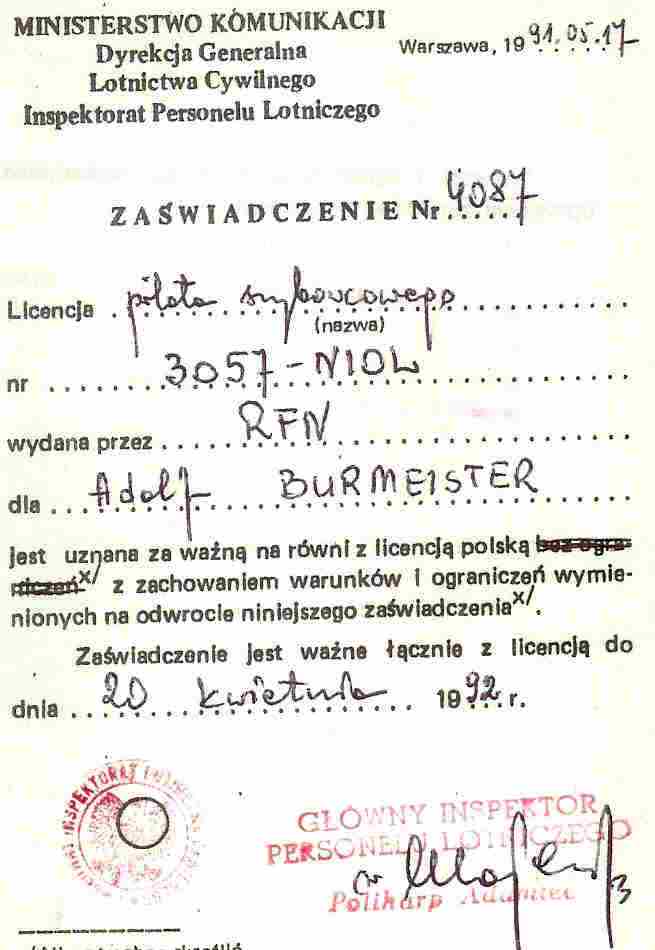 MINISTERSTWO KOMUNIKACJI
Dyrekcja Generalna
Lotnictwa Cywilnego
Inspektorat Personelu Lotniczego
Warszawa, 1991.05.17
ZAŚWIADCZENIE Nr 4087
Licencja pilota szybowcowego
(nazwa)
nr 3057-NIOL
wydana przez RFN
dla Adolf BURMEISTER
jest uznana za ważną na równi z licencją polską bez ogra-
niczeń x/ z zachowaniem warunków i ograniczeń wymie-
nionych na odwrocie niniejszego zaświadczenia x/.
Zaświadczenie jest ważne łącznie z licencją do
dnia 20 kwietnia 1992 r.
INSPEKTORAT
GŁÓWNY INSPEKTOR
PERSONELU LOTNICZEGO
Polikarp Adamiec